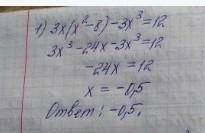 1) 3x(x²-8)-3x³=12
3x³-24x-3x³=12
-24x=12
x=-0,5
Ответ: -0,5.